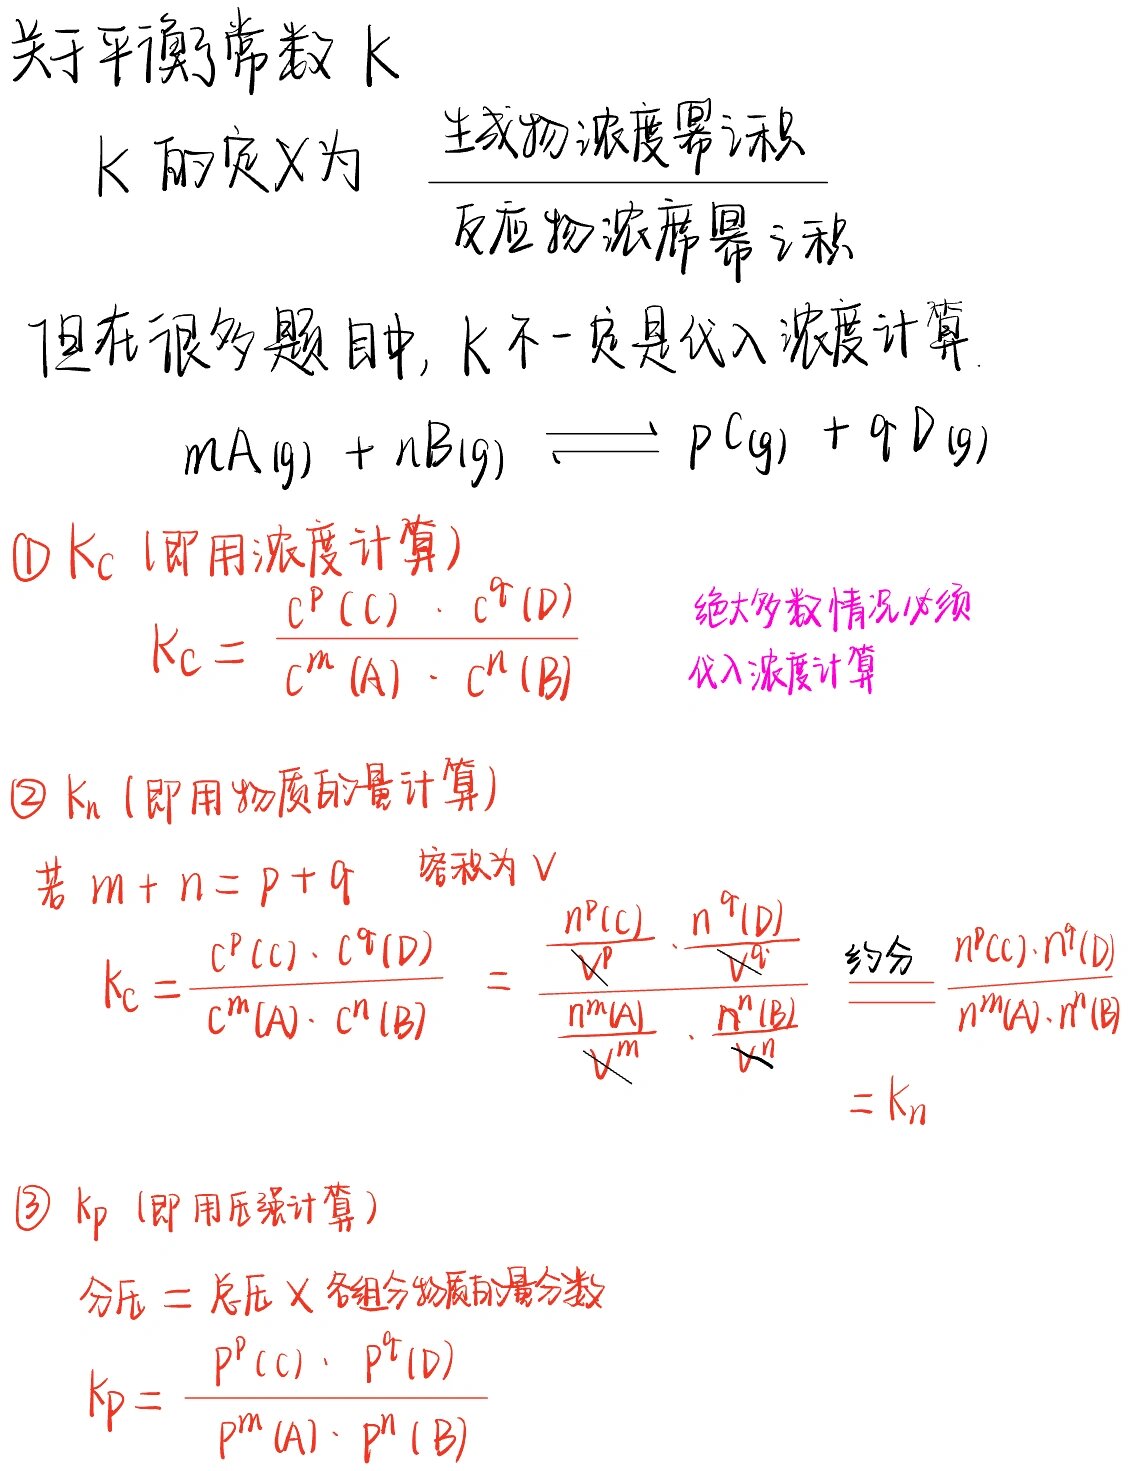 关于平衡常数 K
K 的定义为 生成物浓度幂之积
反应物浓度幂之积
但在很多题目中, K 不一定是代入浓度计算.
mA(g) + nB(g) ⇌ pC(g) + qD(g)
① Kc (即用浓度计算)
Kc = c^p(C) · c^q(D) / c^m(A) · c^n(B)
绝大多数情况必须
代入浓度计算
② Kn (即用物质的量计算)
若 m + n = p + q 容积为 V
Kc = c^p(C) · c^q(D) / c^m(A) · c^n(B) = n^p(C)/V^p · n^q(D)/V^q / n^m(A)/V^m · n^n(B)/V^n 约分 n^p(C) · n^q(D) / n^m(A) · n^n(B)
= Kn
③ Kp (即用压强计算)
分压 = 总压 × 各组分物质的量分数
Kp = P^p(C) · P^q(D) / P^m(A) · P^n(B)